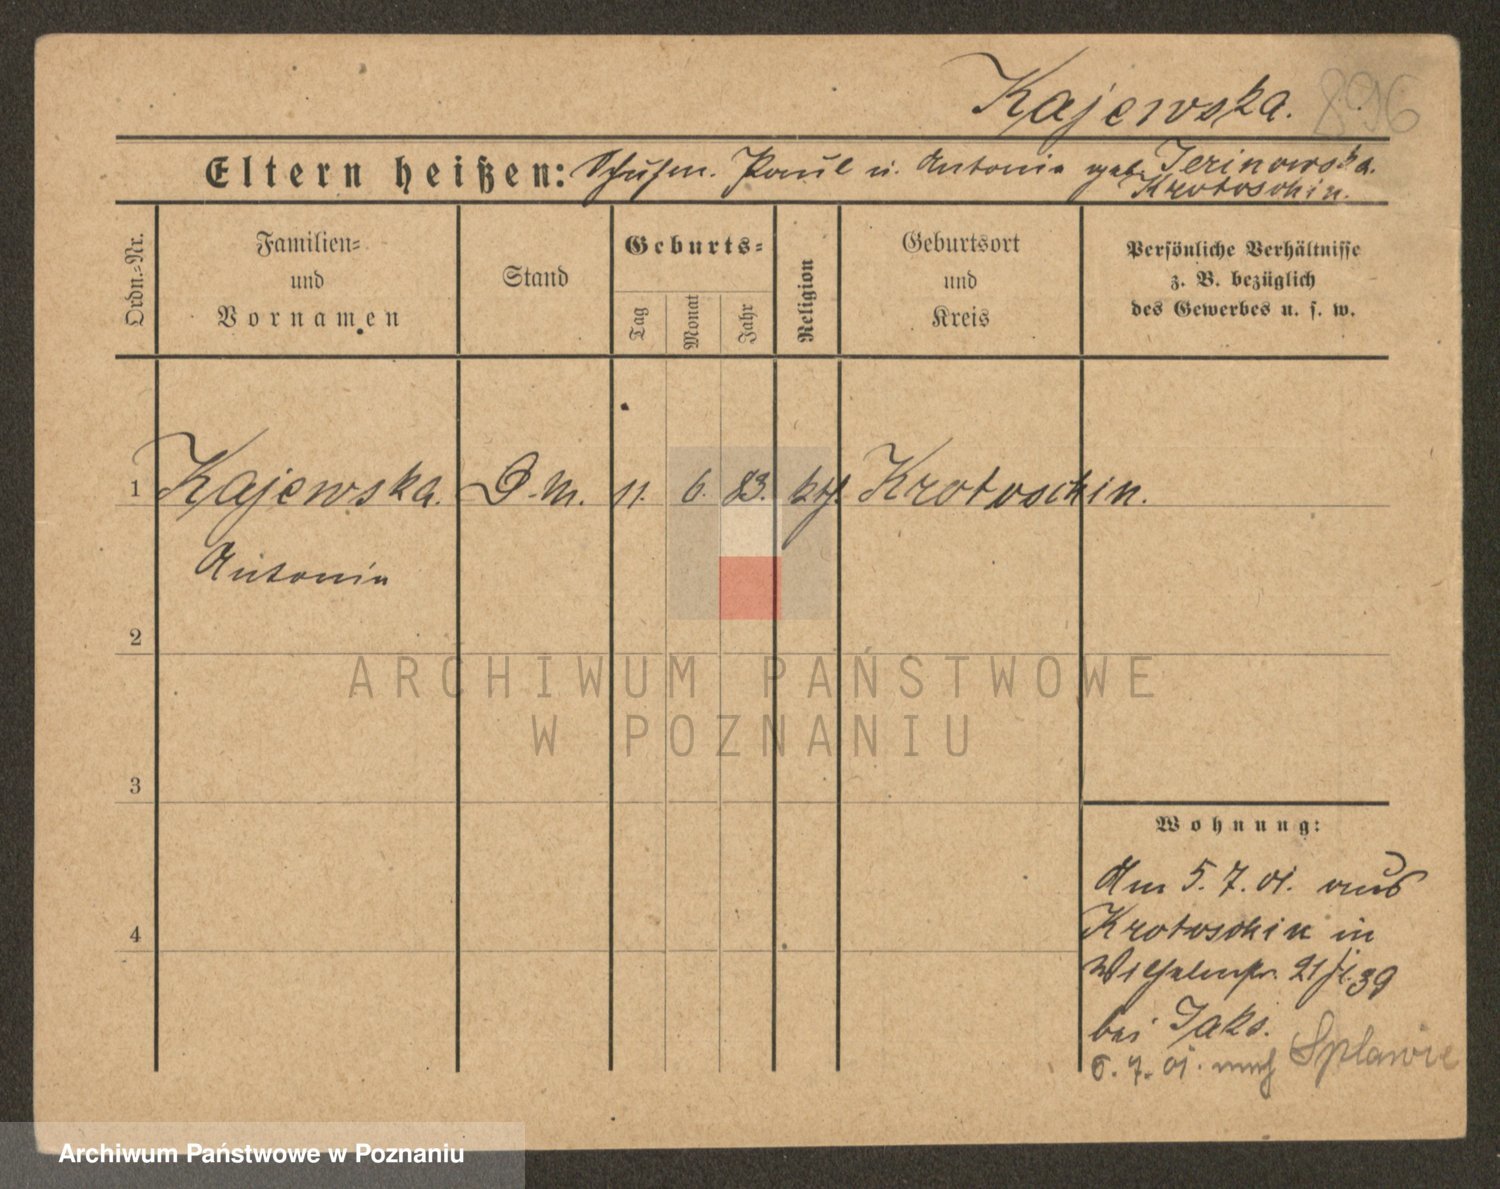 Kajewska. 896
Eltern heißen: Schuhm. Paul u. Antonie geb. Jerinowska.
Krotoschin.
Ordn.-Nr.
Familien-
und
Vornamen
Stand
Geburts-
Tag
Monat
Jahr
Religion
Geburtsort
und
Kreis
Persönliche Verhältnisse
z. B. bezüglich
des Gewerbes u. s. w.
1 Kajewska. D.M. 11. 6. 83. kth. Krotoschin.
Antonie
2
ARCHIWUM PAŃSTWOWE
W POZNANIU
3
Wohnung:
Am 5. 7. 01. aus
4
Krotoschin in
Wilhelmstr. 21
bei Jaks.
6. 7. 01. nach Splawie
Archiwum Państwowe w Poznaniu